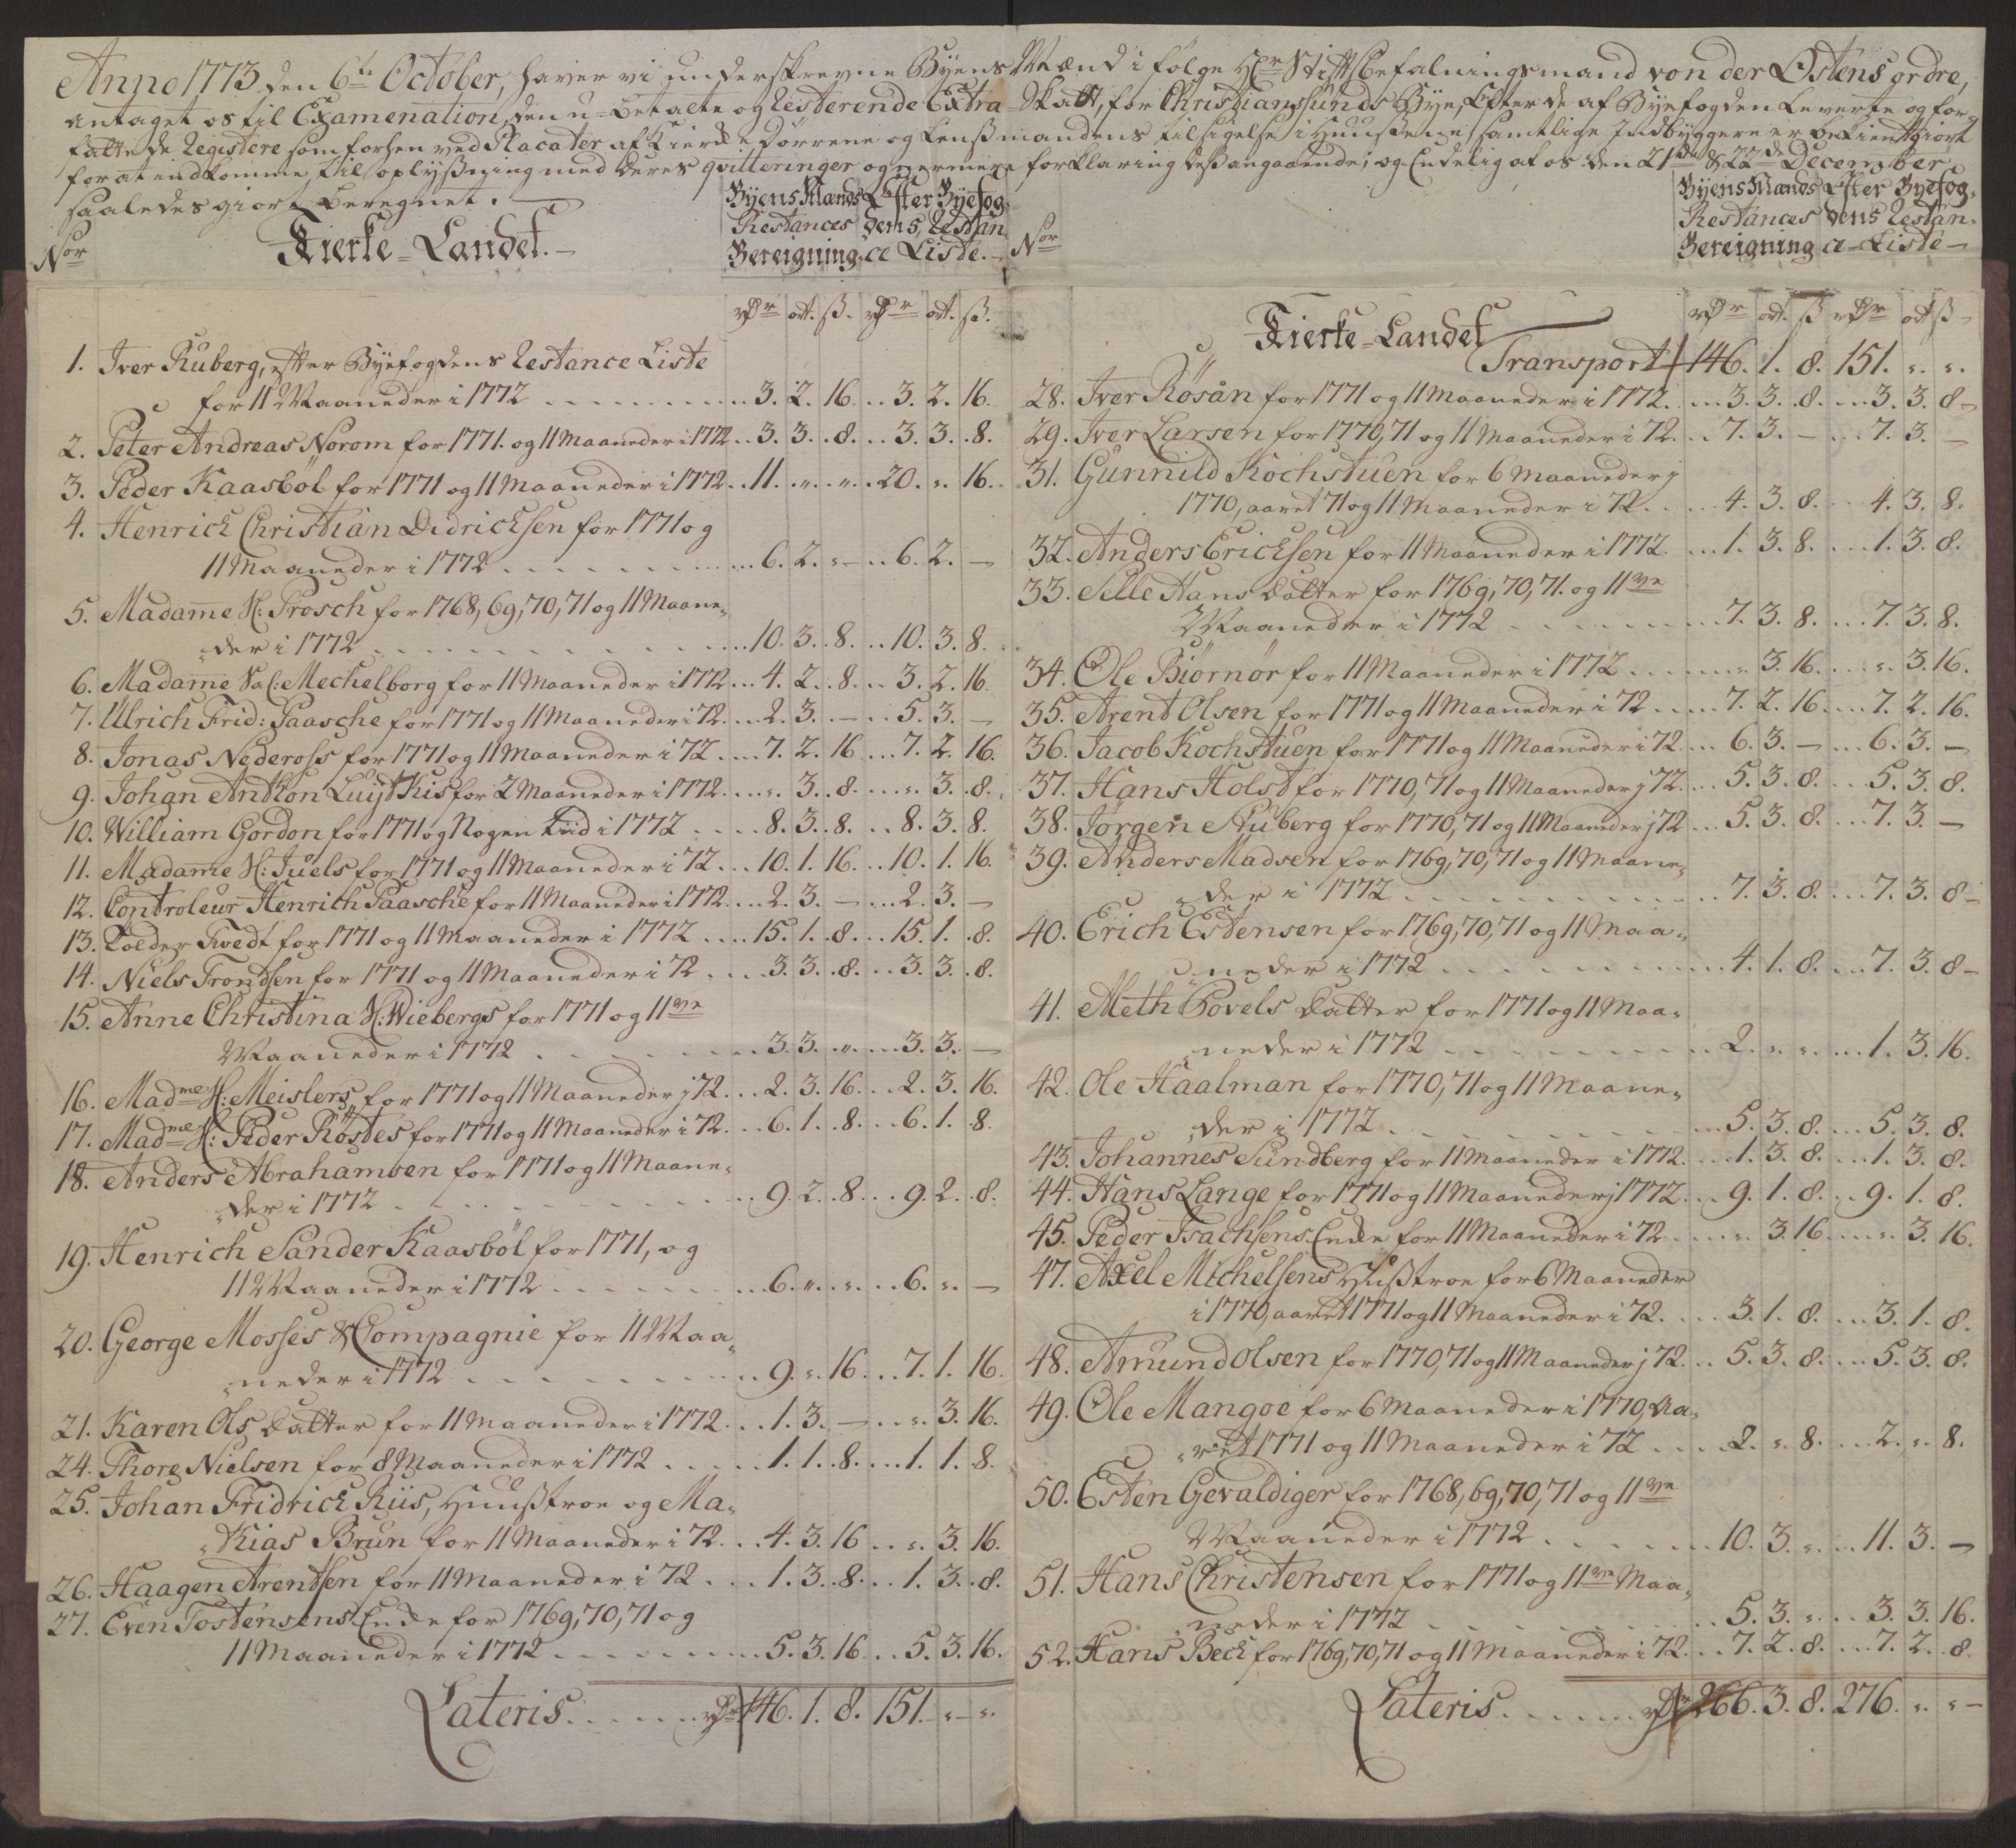 Anno 1773 den 6te October, haver vi underskrevne Byens Mænd i følge Hr Stiftsbefalningsmand von der Østens ordre,
antaget os til Examenation, den u-betalte og resterende Extra Skatt, for Christianssunds Bye, Efter de af Byefogden Leverte og for-
fattede Registere som forhen ved Placater af Kierke Dørrene og Lensmandens tilsigelse i Huusene samtlige Indbyggere er bekientgiort
for at indkomme til oplysning med Deres qvitteringer og nermere forklaring des angaaende; og Endelig af os den 21de & 22de December
saaledes giort beregnet.
Byens Mænds Restances Bereigning
Efter Byefogdens Restance Liste.
Nor Kierke-Landet.
rdr ort. ß. rdr ort. ß.
1. Iver Ruberg, efter Byefogdens Restance Liste
for 11 Maaneder i 1772 3. 2. 16. 3. 2. 16.
2. Peter Andreas Norom for 1771. og 11 Maaneder i 1772 3. 3. 8. 3. 3. 8.
3. Peder Kaasböl for 1771 og 11 Maaneder i 1772 11. „ „ 20. „ 16.
4. Henrick Christian Didricksen for 1771 og
11 Maaneder i 1772 6. 2. - 6. 2. -
5. Madame Sl: Prosch for 1768, 69, 70, 71 og 11 Maane-
der i 1772 10. 3. 8. 10. 3. 8.
6. Madame Sal: Mechelborg for 11 Maaneder i 1772 4. 2. 8. 3. 2. 16.
7. Ulrich Frid: Paasche for 1771 og 11 Maaneder i 72. 2. 3. - 5. 3. -
8. Jonas Nedeross for 1771 og 11 Maaneder i 72 7. 2. 16 7. 2. 16.
9. Johan Anthon Luytkis for 2 Maaneder i 1772 „ 3. 8. „ 3. 8.
10. William Gordon for 1771 og Nogen Tiid i 1772 8. 3. 8. 8. 3. 8.
11. Madame Sl: Juels for 1771 og 11 Maaneder i 72 10. 1. 16. 10. 1. 16.
12. Controleur Henrich Paasche for 11 Maaneder i 1772 2. 3. - 2. 3. -
13. Tolder Tvedt for 1771 og 11 Maaneder i 1772 15. 1. 8. 15. 1. 8.
14. Niels Trondsen for 1771 og 11 Maaneder i 72 3. 3. 8. 3. 3. 8.
15. Anne Christina Sl: Wiebergs for 1771 og 11ve
Maaneder i 1772 3. 3. „ 3. 3. -
16. Madme Sl: Meislers for 1771 og 11 Maaneder i 72 2. 3. 16. 2. 3. 16.
17. Madme Sl: Peder Röstes for 1771 og 11 Maaneder i 72 6. 1. 8. 6. 1. 8.
18. Anders Abrahamsen for 1771 og 11 Maane-
der i 1772 9. 2. 8. 9. 2. 8.
19. Henrich Sander Kaasböl for 1771, og
11 Maaneder i 1772 6. „ „ 6. „ -
20. George Mosses & Compagnie for 11 Maa-
neder i 1772 9. „ 16. 7. 1. 16.
21. Karen Ols Datter for 11 Maaneder i 1772 1. 3. - „ 3. 16.
24. Thore Nielsen for 8 Maaneder i 1772 1. 1. 8. 1. 1. 8.
25. Johan Fridrick Riis, Huustroe og Ma-
thias Brun for 11 Maaneder i 72 4. 3. 16 „ 3. 16.
26. Haagen Arentsen for 11 Maaneder i 72 1. 3. 8. 1. 3. 8.
27. Even Tostensens Enke for 1769, 70, 71 og
11 Maaneder i 1772 5. 3. 16 5. 3. 16.
Lateris rdr 146. 1. 8. 151. „ „
Byens Mænds Restances Bereigning
Efter Byefogdens Restance Liste
Nor Kierke-Landet
rdr ort. ß rdr ort ß
Transport 146. 1. 8. 151. „ „
28. Iver Rösån for 1771 og 11 Maaneder i 1772. 3. 3. 8. 3. 3. 8
29. Iver Larsen for 1770, 71 og 11 Maaneder i 72. 7. 3. - 7. 3. -
31. Gunnild Kochstuen for 6 Maaneder i
1770, aaret 71 og 11 Maaneder i 72 4. 3. 8. 4. 3. 8.
32. Anders Ericksen for 11 Maaneder i 1772 1. 3. 8. 1. 3. 8.
33. Selle Hans Datter for 1769, 70, 71. og 11ve
Maaneder i 1772 7. 3. 8. 7. 3. 8.
34. Ole Biörnör for 11 Maaneder i 1772 „ 3. 16. „ 3. 16.
35. Arent Olsen for 1771 og 11 Maaneder i 72 7. 2. 16. 7. 2. 16.
36. Jacob Kochstuen for 1771 og 11 Maaneder i 72 6. 3. - 6. 3. -
37. Hans Holst for 1770, 71 og 11 Maaneder i 72. 5. 3. 8. 5. 3. 8.
38. Jörgen Ruberg for 1770, 71 og 11 Maaneder i 72 5. 3. 8. 7. 3. -
39. Anders Madsen for 1769, 70, 71 og 11 Maane-
der i 1772 7. 3. 8. 7. 3. 8
40. Erich Estensen for 1769, 70, 71 og 11 Maa-
neder i 1772 4. 1. 8. 7. 3. 8
41. Meth Povels Datter for 1771 og 11 Maa-
neder i 1772 2. „ „ 1. 3. 16.
42. Ole Haalman for 1770, 71 og 11 Maane-
der i 1772 5. 3. 8. 5. 3. 8.
43. Johannes Sundberg for 11 Maaneder i 1772 1. 3. 8. 1. 3. 8.
44. Hans Lange for 1771 og 11 Maaneder i 1772 9. 1. 8. 9. 1. 8.
45. Peder Isachsens Enke for 11 Maaneder i 72 „ 3. 16. „ 3. 16.
47. Axel Michelsens Hustroe for 6 Maaneder
i 1770, aaret 1771 og 11 Maaneder i 72. 3. 1. 8. 3. 1. 8.
48. Amund Olsen for 1770, 71 og 11 Maaneder i 72 5. 3. 8. 5. 3. 8.
49. Ole Mangoe for 6 Maaneder i 1770, Aa-
ret 1771 og 11 Maaneder i 72 2. „ 8. 2. „ 8.
50. Esten Gevaldiger for 1768, 69, 70, 71 og 11ve
Maaneder i 1772 10. 3. „ 11. 3. -
51. Hans Christensen for 1771 og 11ve Maa-
neder i 1772 5. 3. „ 3. 3. 16.
52. Hans Beck for 1769, 70, 71 og 11 Maaneder i 72 7. 2. 8. 7. 2. 8
Lateris rdr 266. 3. 8. 276. „ „